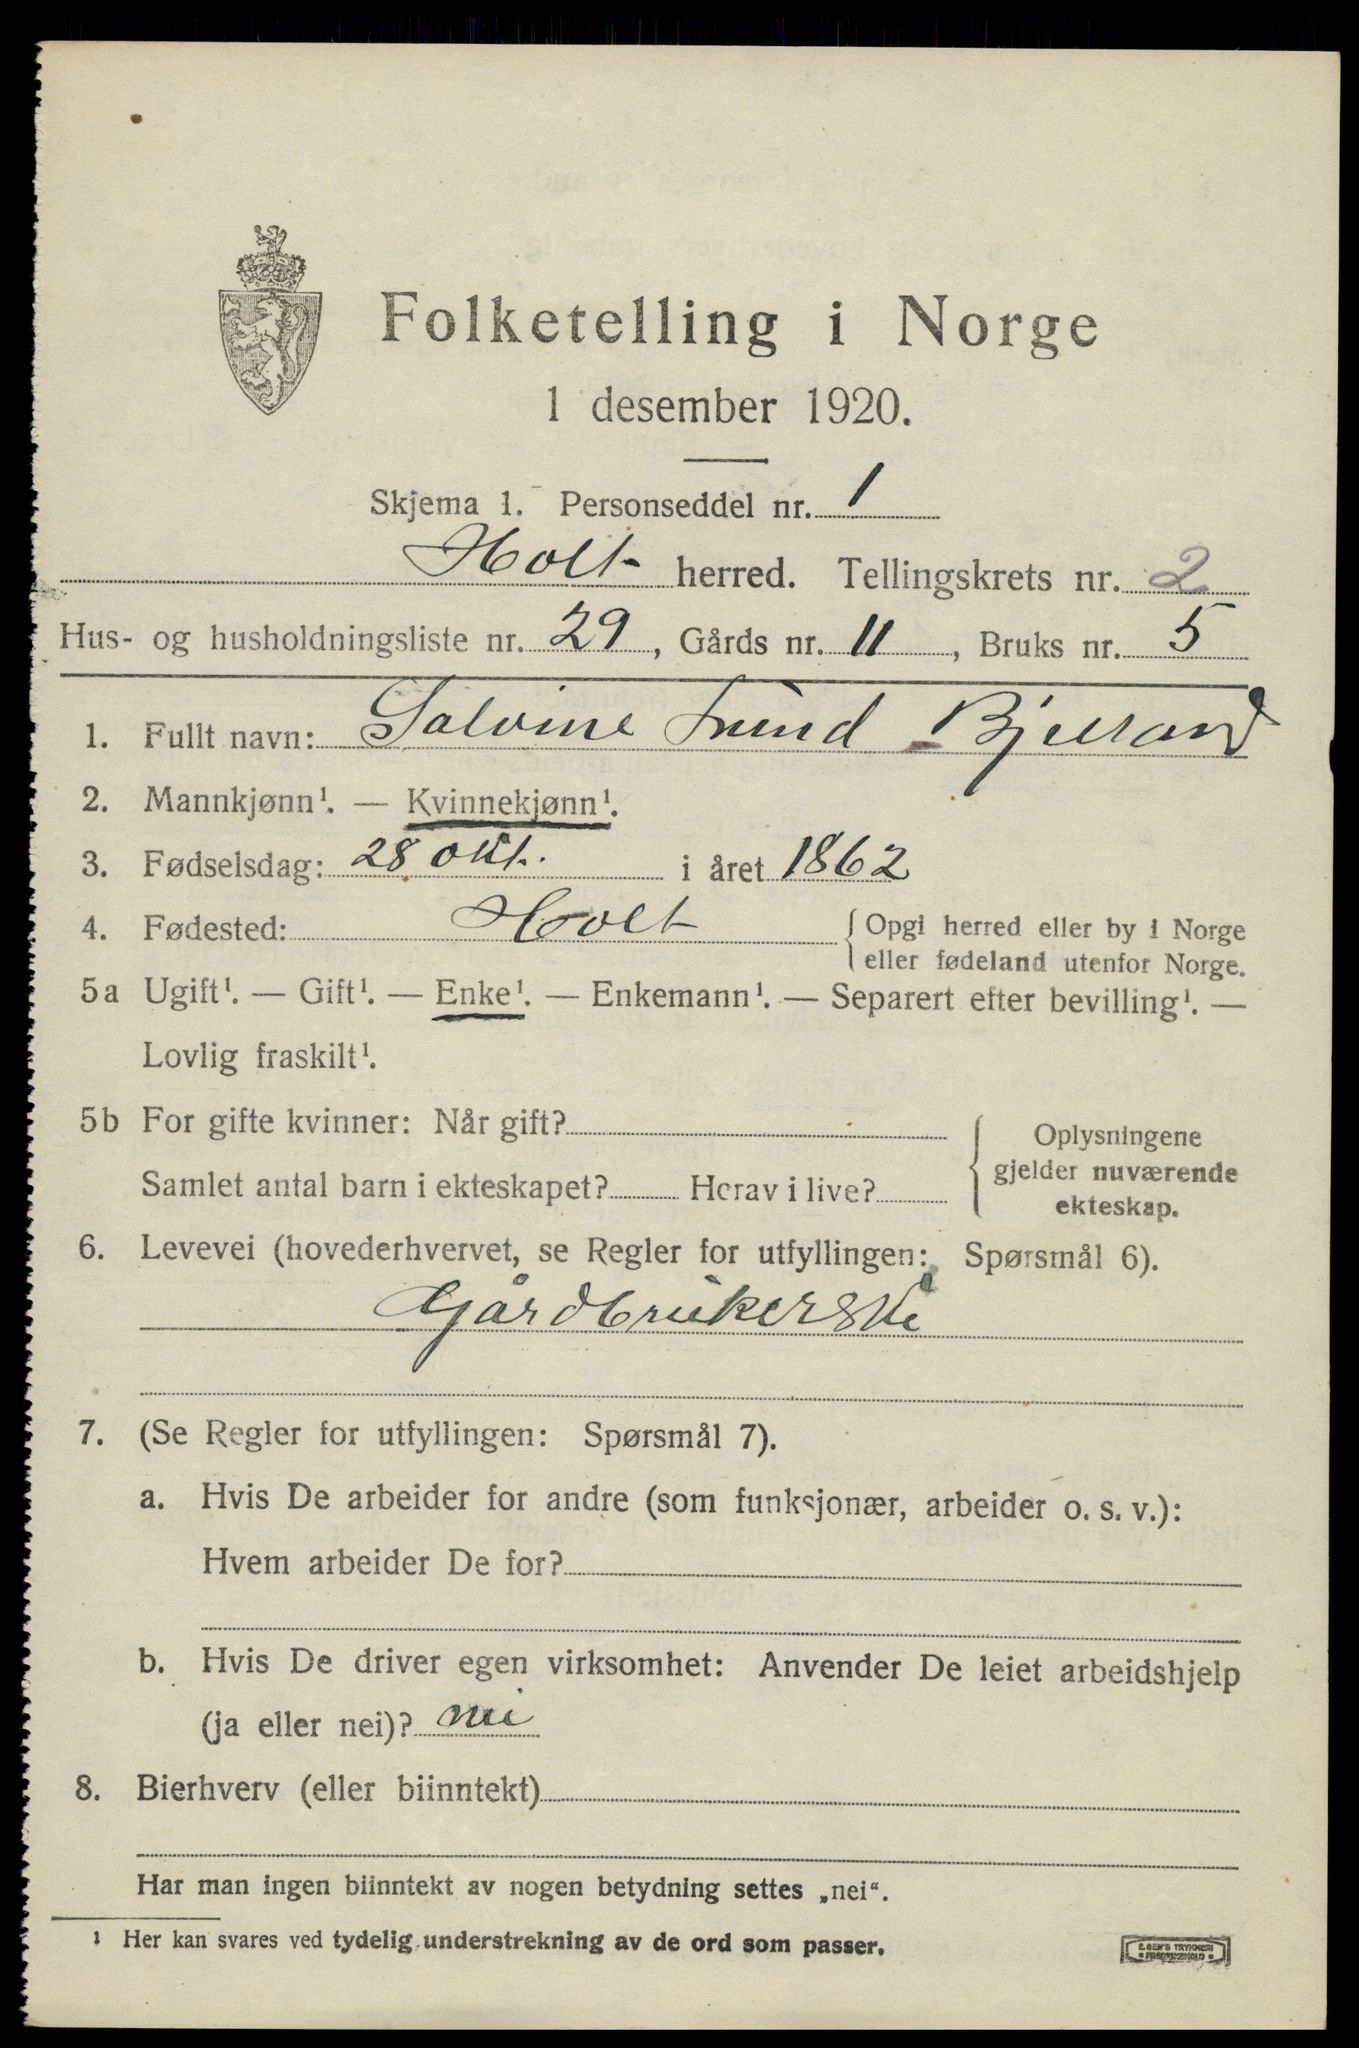 Folketelling i Norge
1 desember 1920.
Skjema 1. Personseddel nr. 1
Holt herred. Tellingskrets nr. 2
Hus- og husholdningsliste nr. 29, Gårds nr. 11, Bruks nr. 5
1. Fullt navn: Salvine Lund Bjelland
2. Mannkjønn¹. — Kvinnekjønn¹.
3. Fødselsdag: 28 okt. i året 1862
4. Fødested: Holt { Opgi herred eller by i Norge
eller fødeland utenfor Norge.
5a Ugift¹. — Gift¹. — Enke¹. — Enkemann¹. — Separert efter bevilling¹. —
Lovlig fraskilt¹.
5b For gifte kvinner: Når gift?
Samlet antal barn i ekteskapet? Herav i live?
{ Oplysningene
gjelder nuværende
ekteskap.
6. Levevei (hovederhvervet, se Regler for utfyllingen: Spørsmål 6).
Gårdbrukerske
7. (Se Regler for utfyllingen: Spørsmål 7).
a. Hvis De arbeider for andre (som funksjonær, arbeider o. s. v.):
Hvem arbeider De for?
b. Hvis De driver egen virksomhet: Anvender De leiet arbeidshjelp
(ja eller nei)? nei
8. Bierhverv (eller biinntekt)
Har man ingen biinntekt av nogen betydning settes „nei“.
¹ Her kan svares ved tydelig understrekning av de ord som passer.
E. SEM'S TRYKKERI
FREDRIKSHALD